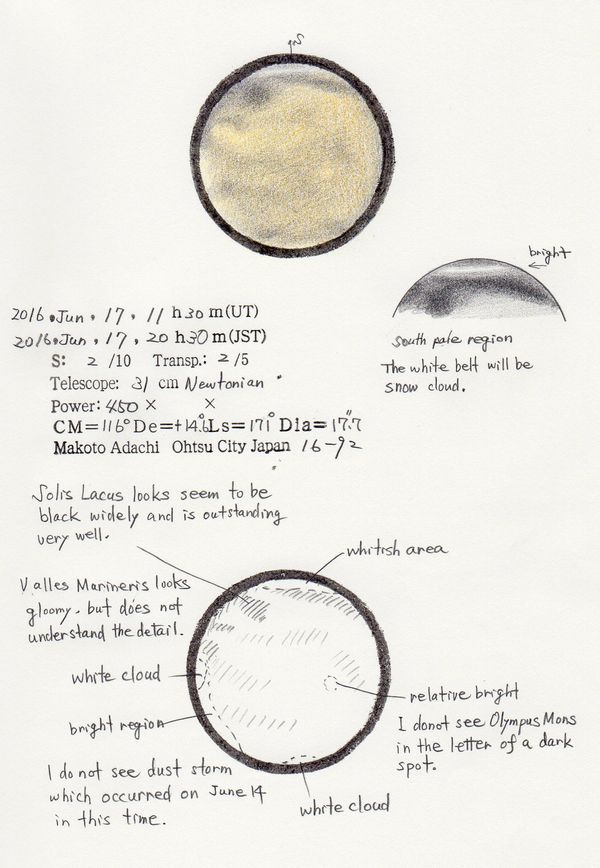 S
bright
2016. Jun. 17. 11 h 30 m (UT)
2016. Jun. 17. 20 h 30 m (JST)
S: 2 /10 Transp.: 2 /5
Telescope: 31 cm Newtonian
Power: 450 × ×
CM=116° De=+14.6° Ls=171° Dia=17.7"
Makoto Adachi Ohtsu City Japan 16-92
south pale region
The white belt will be
snow cloud.
Solis Lacus looks seem to be
black widely and is outstanding
very well.
whitish area
Valles Marineris looks
gloomy. but does not
understand the detail.
white cloud
relative bright
bright region
I donot see Olympus Mons
in the letter of a dark
spot.
I do not see dust storm
which occurred on June 14
in this time.
white cloud